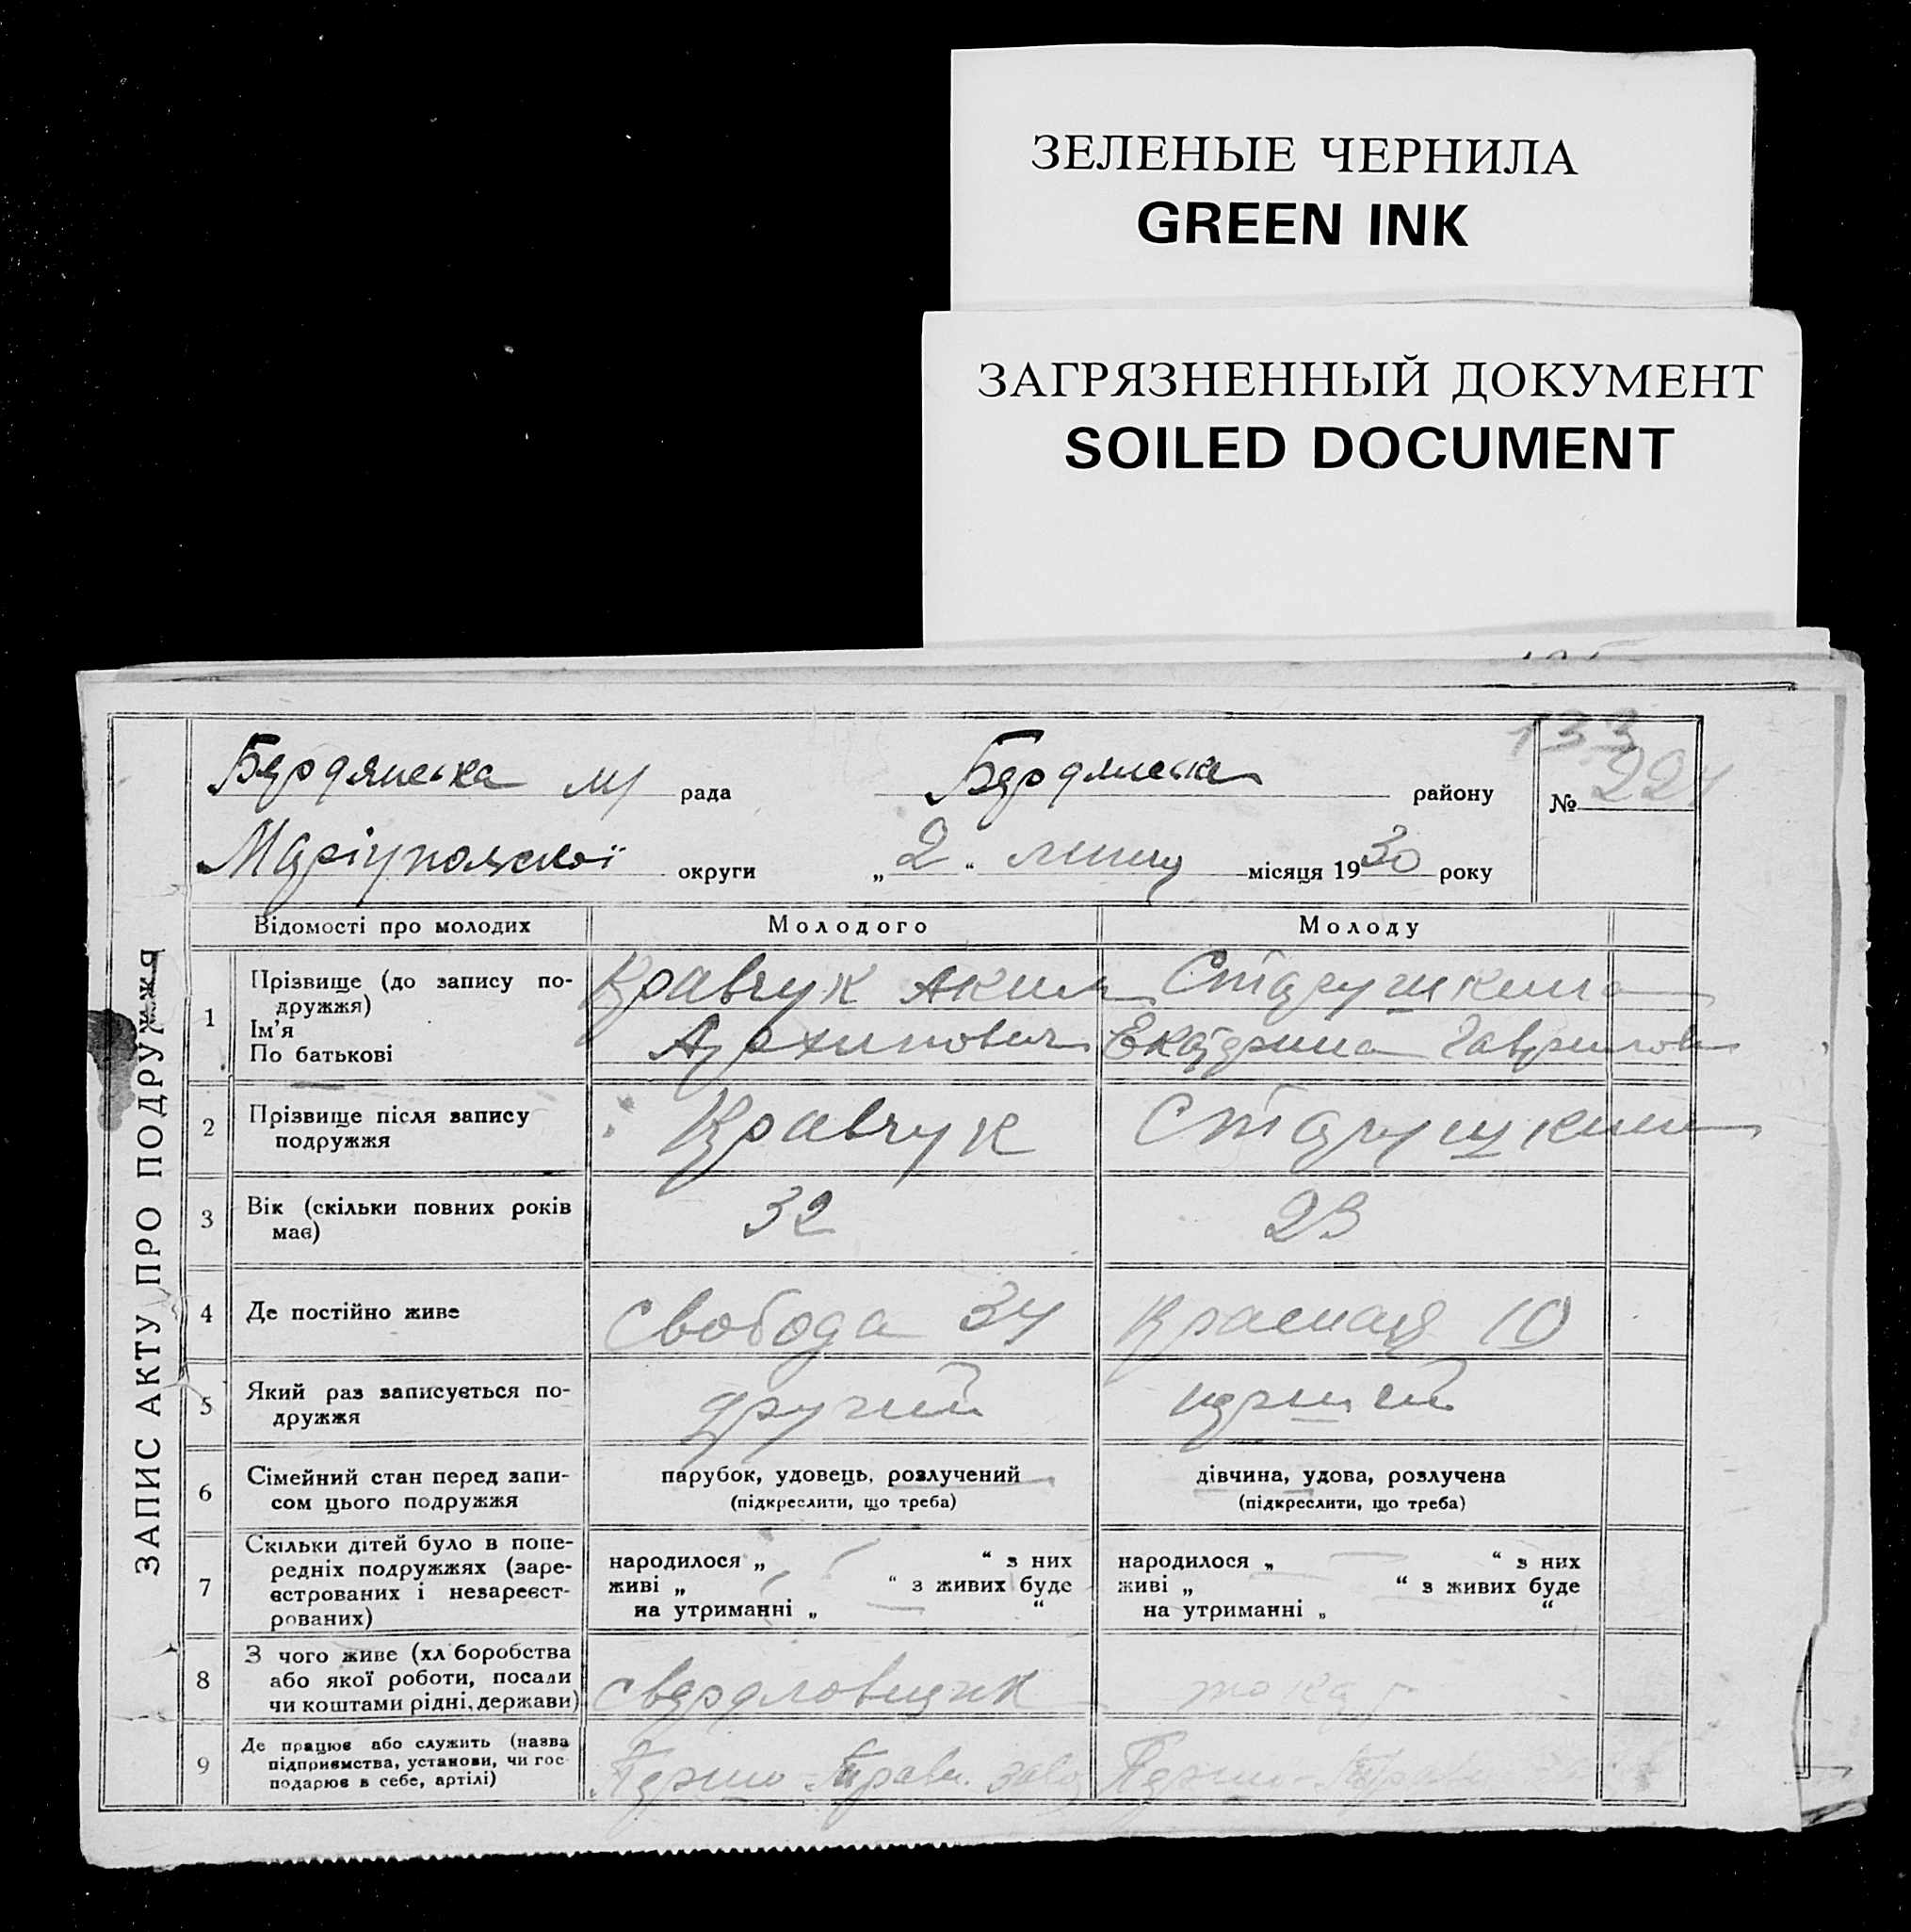 ЗЕЛЕНЫЕ ЧЕРНИЛА
GREEN INK
ЗАГРЯЗНЕННЫЙ ДОКУМЕНТ
SOILED DOCUMENT
133
Бердянська м/ рада Бердянська району № 221
Маріупольскої округи „2“ липця місяця 1930 року
ЗАПИС АКТУ ПРО ПОДРУЖЖЯ
Відомості про молодих Молодого Молоду
1 Прізвище (до запису по-
дружжя)
Ім'я
По батькові
Кравчук Аким
Архипович
Старушкина
Екатерина Гаврилов
2 Прізвище після запису
подружжя
Кравчук Старушкина
3 Вік (скільки повних років
має)
32 23
4 Де постійно живе Свобода 34 Красная 10
5 Який раз записується по-
дружжя
другий перший
6 Сімейний стан перед запи-
сом цього подружжя
парубок, удовець, розлучений
(підкреслити, що треба)
дівчина, удова, розлучена
(підкреслити, що треба)
7 Скільки дітей було в попе-
редніх подружжях (заре-
єстрованих і незареєст-
рованих)
народилося „ — “ з них
живі „ — “ з живих буде
на утриманні „ — “
народилося „ — “ з них
живі „ — “ з живих буде
на утриманні „ “
8 З чого живе (хл боробства
або якої роботи, посади
чи коштами рідні, держави)
свердловщик токар
9 Де працює або служить (назва
підприємства, установи, чи гос-
подарює в себе, артілі)
Першо-Травн. завод Першо-Травн